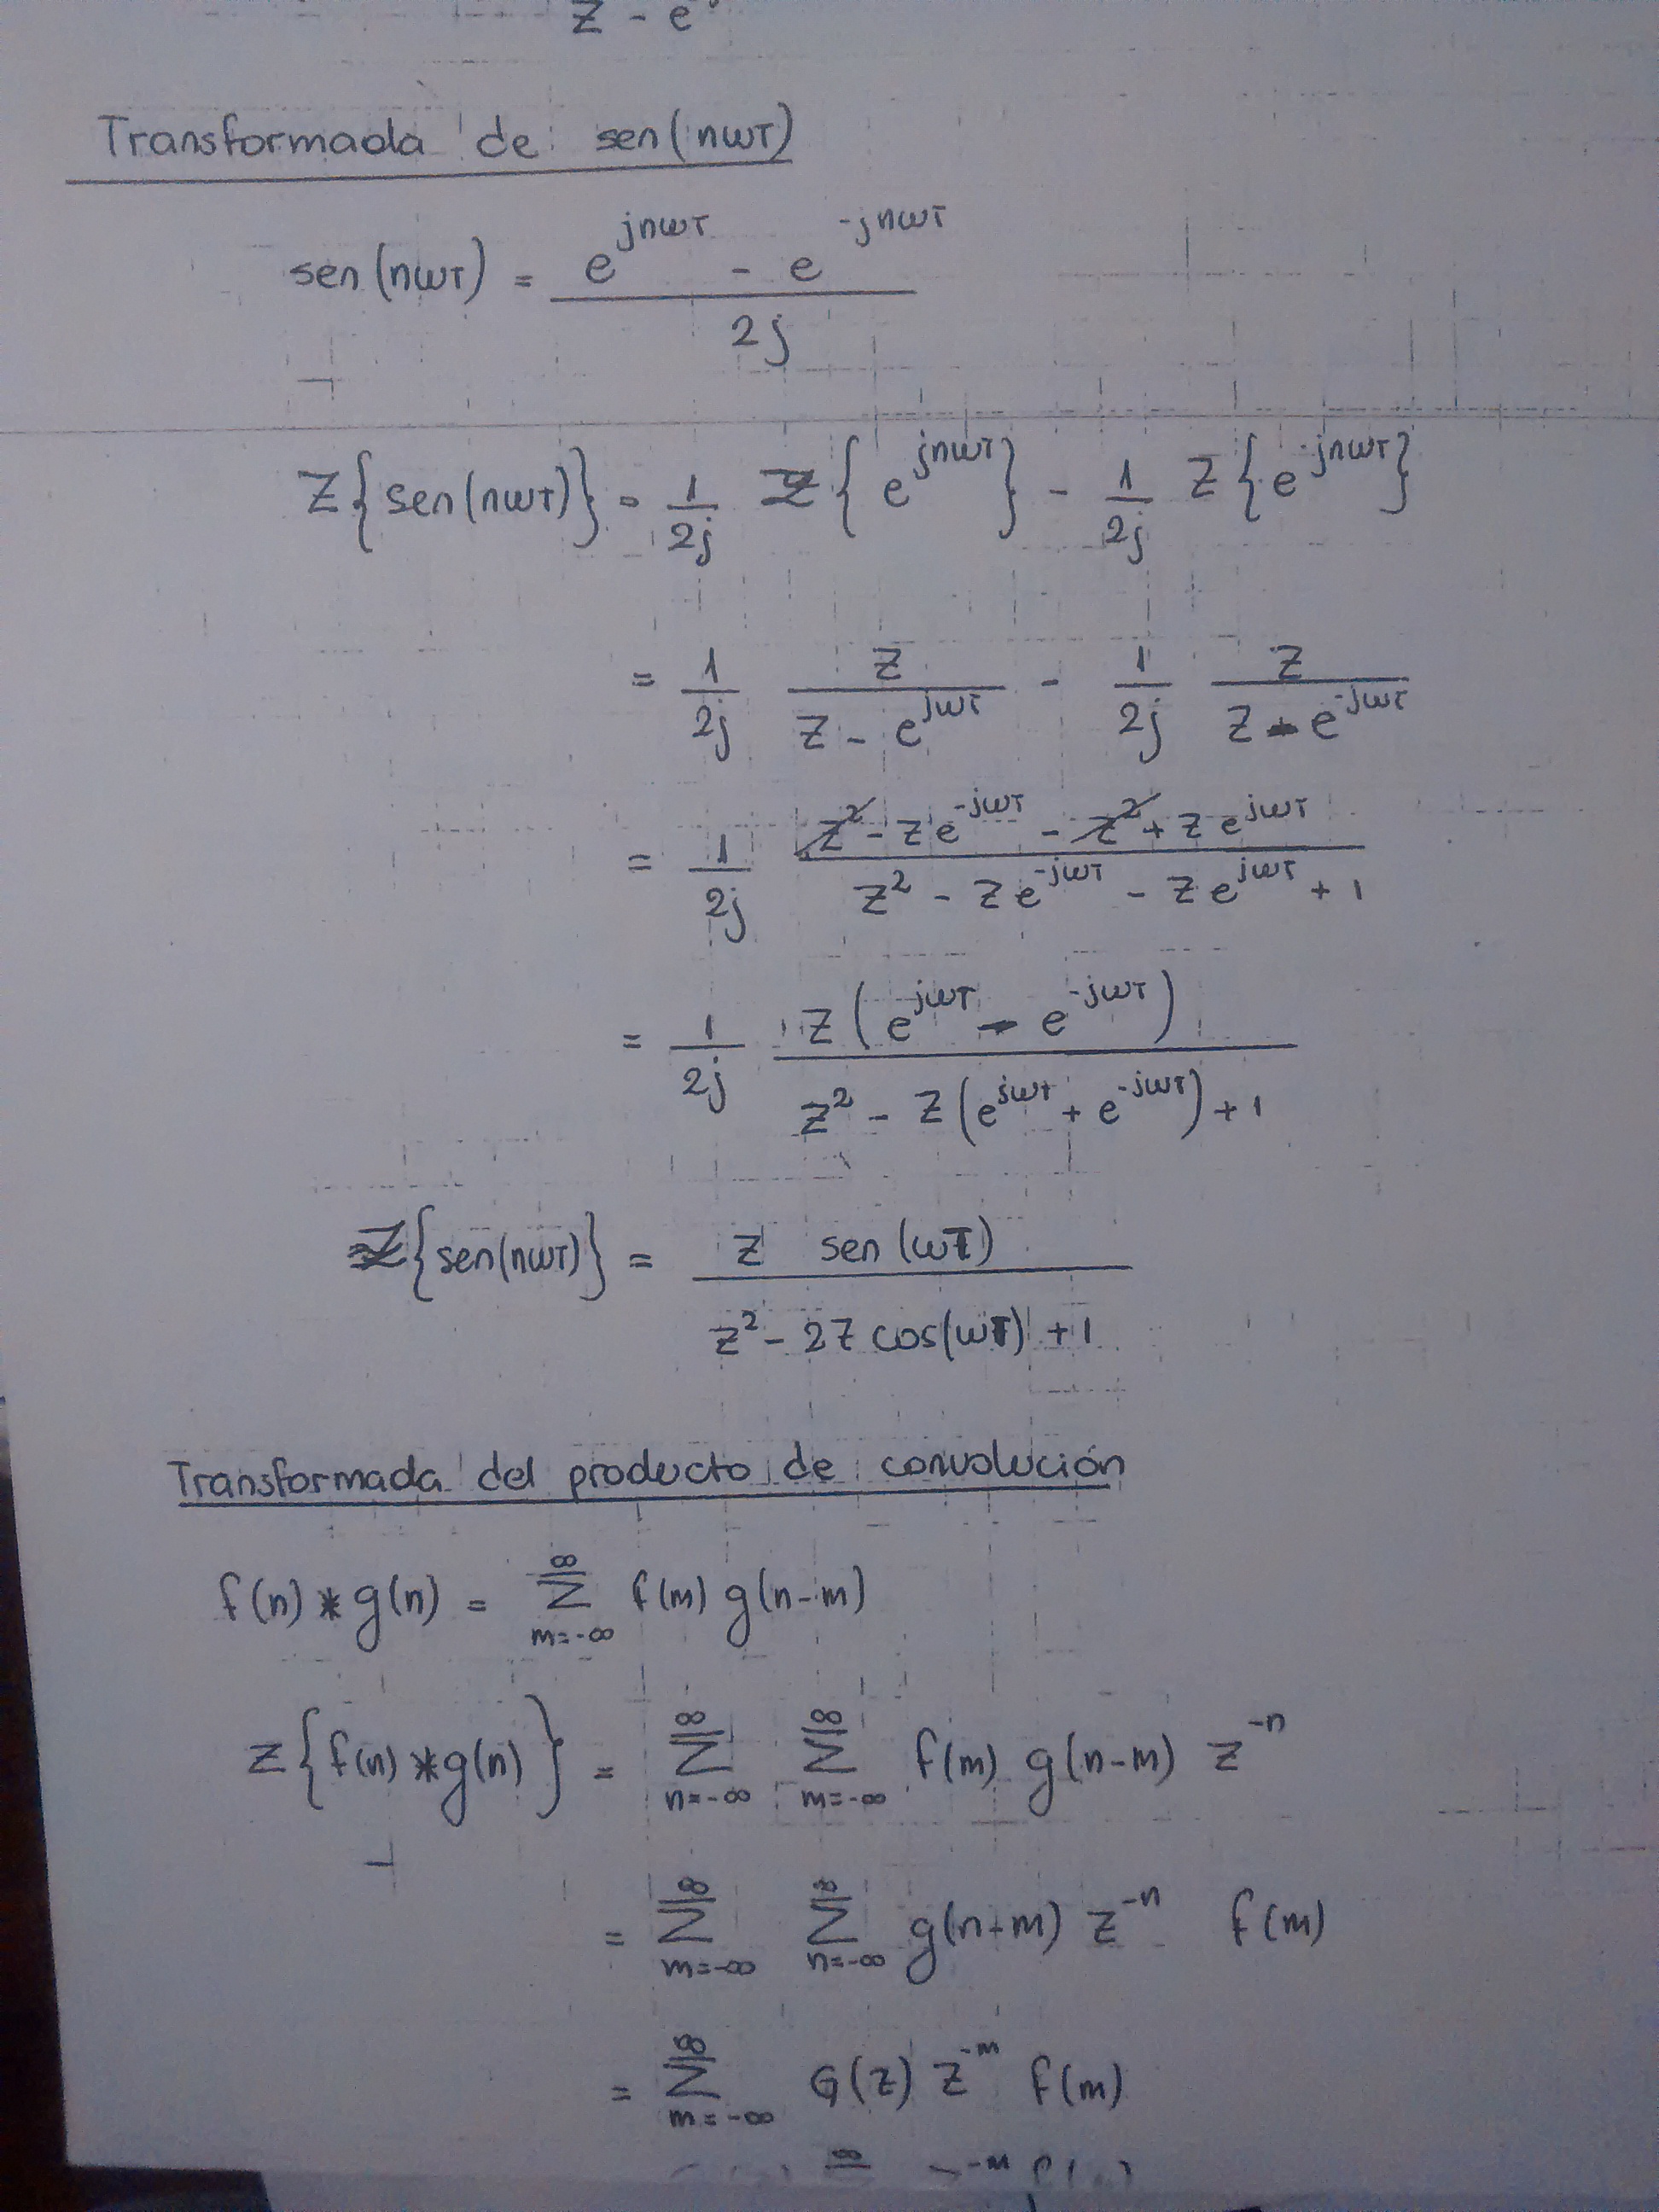 z - e
Transformada de sen(nωT)
sen(nωT) = (e^{jnωT} - e^{-jnωT}) / 2j
Z{sen(nωT)} = 1/2j Z{e^{jnωT}} - 1/2j Z{e^{-jnωT}}
= 1/2j z/(z - e^{jωT}) - 1/2j z/(z - e^{-jωT})
= 1/2j (z² - z e^{-jωT} - z² + z e^{jωT}) / (z² - z e^{-jωT} - z e^{jωT} + 1)
= 1/2j z(e^{jωT} - e^{-jωT}) / (z² - z(e^{jωT} + e^{-jωT}) + 1)
Z{sen(nωT)} = z sen(ωT) / (z² - 2z cos(ωT) + 1)
Transformada del producto de convolución
f(n) * g(n) = ∑_{m=-∞}^{∞} f(m) g(n-m)
Z{f(n) * g(n)} = ∑_{n=-∞}^{∞} ∑_{m=-∞}^{∞} f(m) g(n-m) z^{-n}
= ∑_{m=-∞}^{∞} ∑_{n=-∞}^{∞} g(n-m) z^{-n} f(m)
= ∑_{m=-∞}^{∞} G(z) z^{-m} f(m)